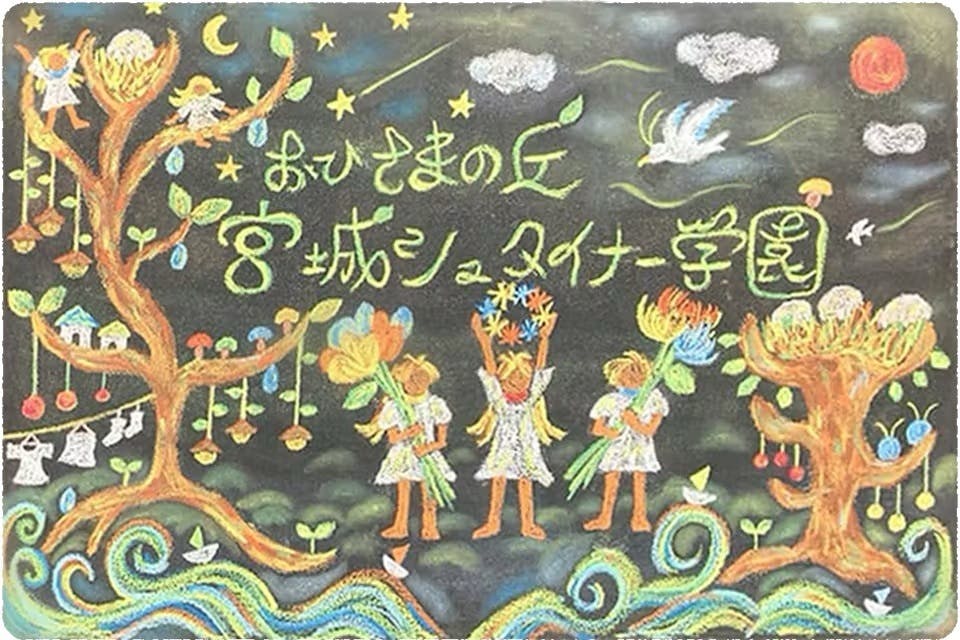 おひさまの丘
宮城シュタイナー学園